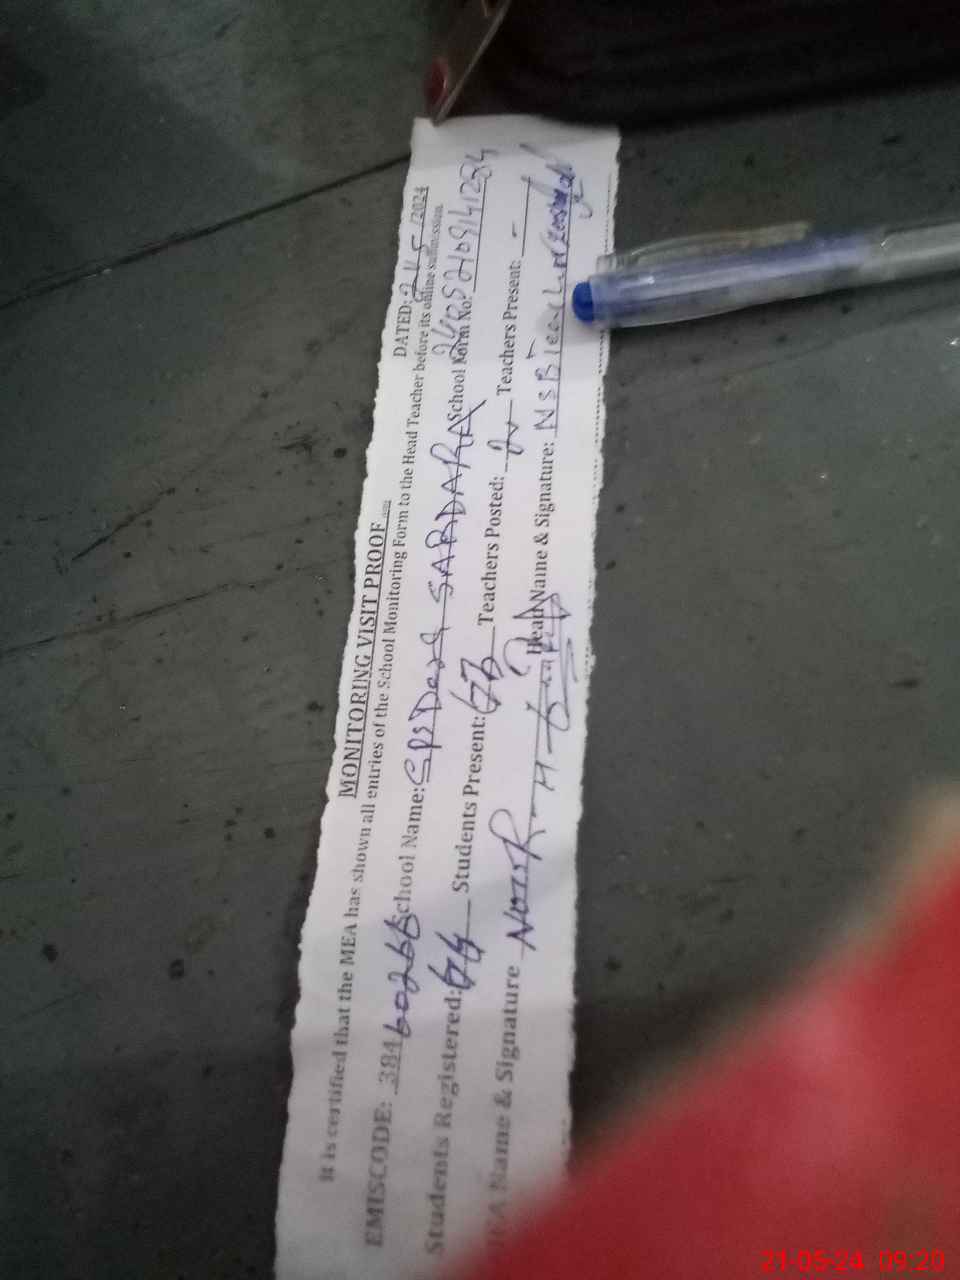 MONITORING VISIT PROOF
DATED: /5/2024
It is certified that the MEA has shown all entries of the School Monitoring Form to the Head Teacher before its online submission.
EMISCODE: 38460266 School Name: GPS Dera SARDARA School Form No: 24052109141284
Students Registered: 64 Students Present: 63 Teachers Posted: Teachers Present: -
MEA Name & Signature NASIR Head Name & Signature: NSB Teacher
21-05-24 09:20